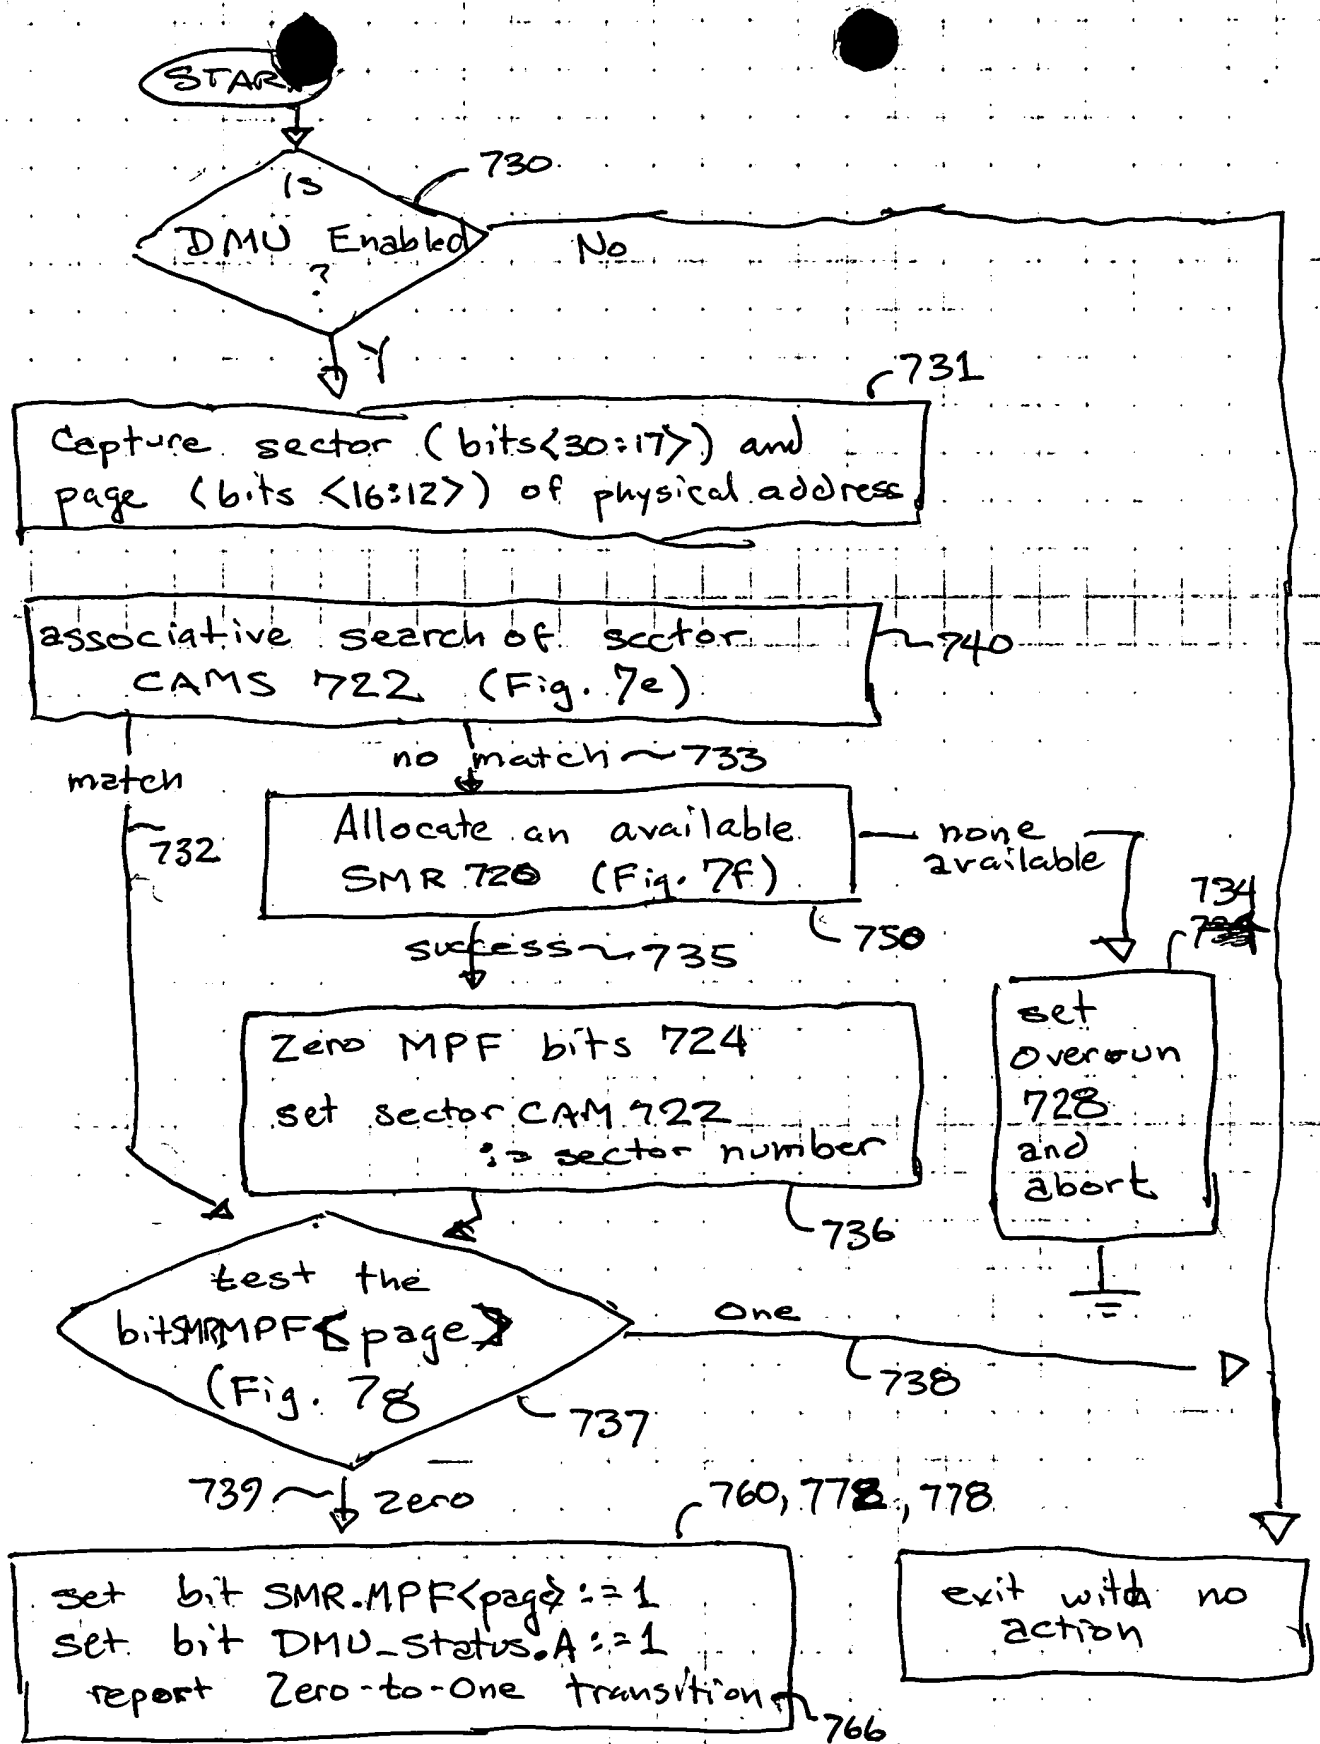 START
730
Is
DMU Enabled
?
No
Y
731
Capture sector (bits<30:17>) and
page (bits <16:12>) of physical address
associative search of sector
CAMS 722 (Fig. 7e)
740
match
no match 733
732
Allocate an available
SMR 720 (Fig. 7f)
none
available
750
734
success 735
Zero MPF bits 724
set sector CAM 722
:= sector number
736
set
overrun
728
and
abort
test the
bit SMR MPF<page>
(Fig. 7g
737
One
738
739 zero
760, 772, 778
set bit SMR.MPF<page> :=1
set bit DMU_Status.A :=1
report Zero-to-One transition
766
exit with no
action